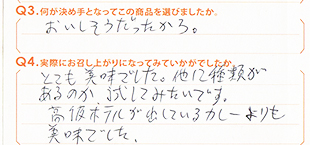 Q3.何が決め手となってこの商品を選びましたか。
おいしそうだったから。
Q4.実際にお召し上がりになってみていかがでしたか。
とても美味でした。他に種類が
あるのか試してみたいです。
高級ホテルが出しているカレーよりも
美味でした。